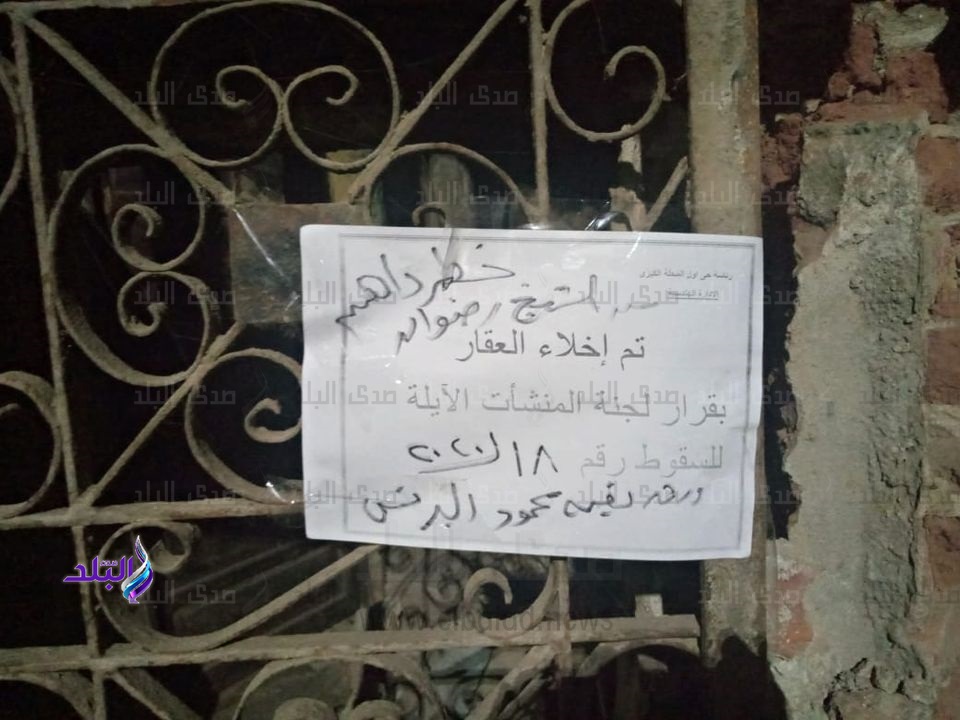 رئاسة حى اول المحلة الكبرى
الإدارة الهندسية
خطر داهم
الشيخ رضوان
تم إخلاء العقار
بقرار لجنة المنشأت الآيلة
للسقوط رقم ١٨ لـ ٢٠٢٠
محمود
صدى البلد